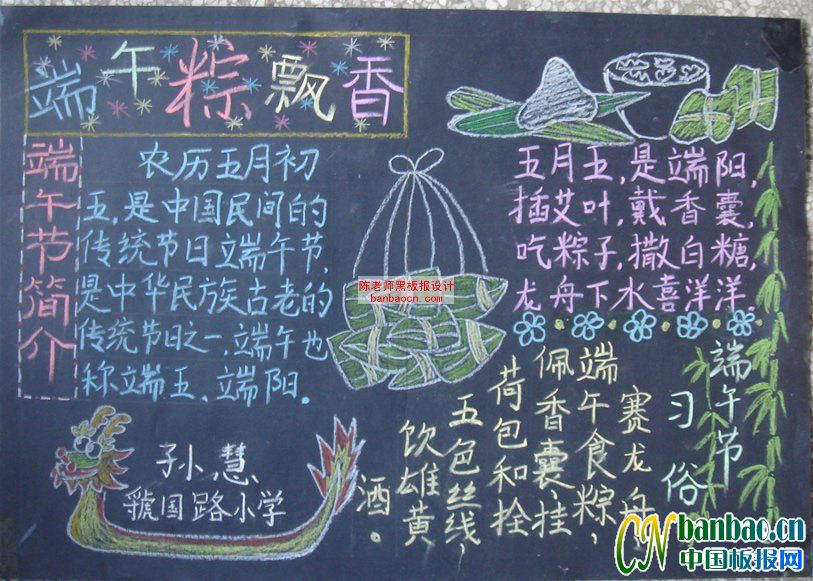 端午粽飘香
端午节简介
农历五月初
五，是中国民间的
传统节日端午节，
是中华民族古老的
传统节日之一，端午也
称端五、端阳。
陈老师黑板报设计
banbaocn.com
五月五，是端阳，
插艾叶，戴香囊，
吃粽子，撒白糖，
龙舟下水喜洋洋
端午节
习俗
赛龙舟
端午食粽，
佩香囊、挂
荷包和拴
五色丝线，
饮雄黄
酒。
孙慧
虢国路小学
CN banbao.cn
中国板报网